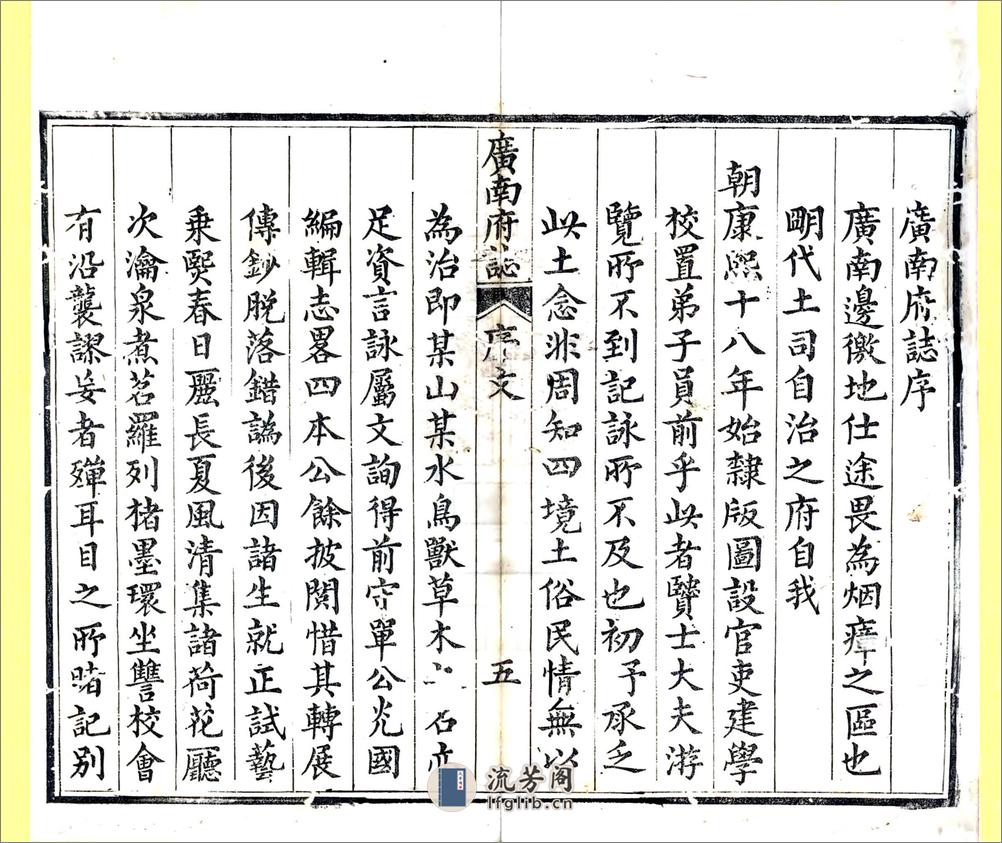 廣南府誌序
廣南邊徼地仕途畏為烟瘴之區也
明代土司自治之府自我
朝康熙十八年始隸版圖設官吏建學
校置弟子員前乎此者賢士大夫游
覽所不到記詠所不及也初予承乏
此土念非周知四境土俗民情無以
廣南府誌
序文
五
為治即某山某水鳥獸草木 石亦
足資言詠屬文詢得前守單公光國
編輯志畧四本公餘披閱惜其轉展
傳鈔脫落錯譌後因諸生就正試藝
乗暇春日麗長夏風清集諸荷花廳
次瀹泉煮茗羅列楮墨環坐讐校會
有沿襲謬妄者殫耳目之所睹記別
流芳阁
lfglib.cn